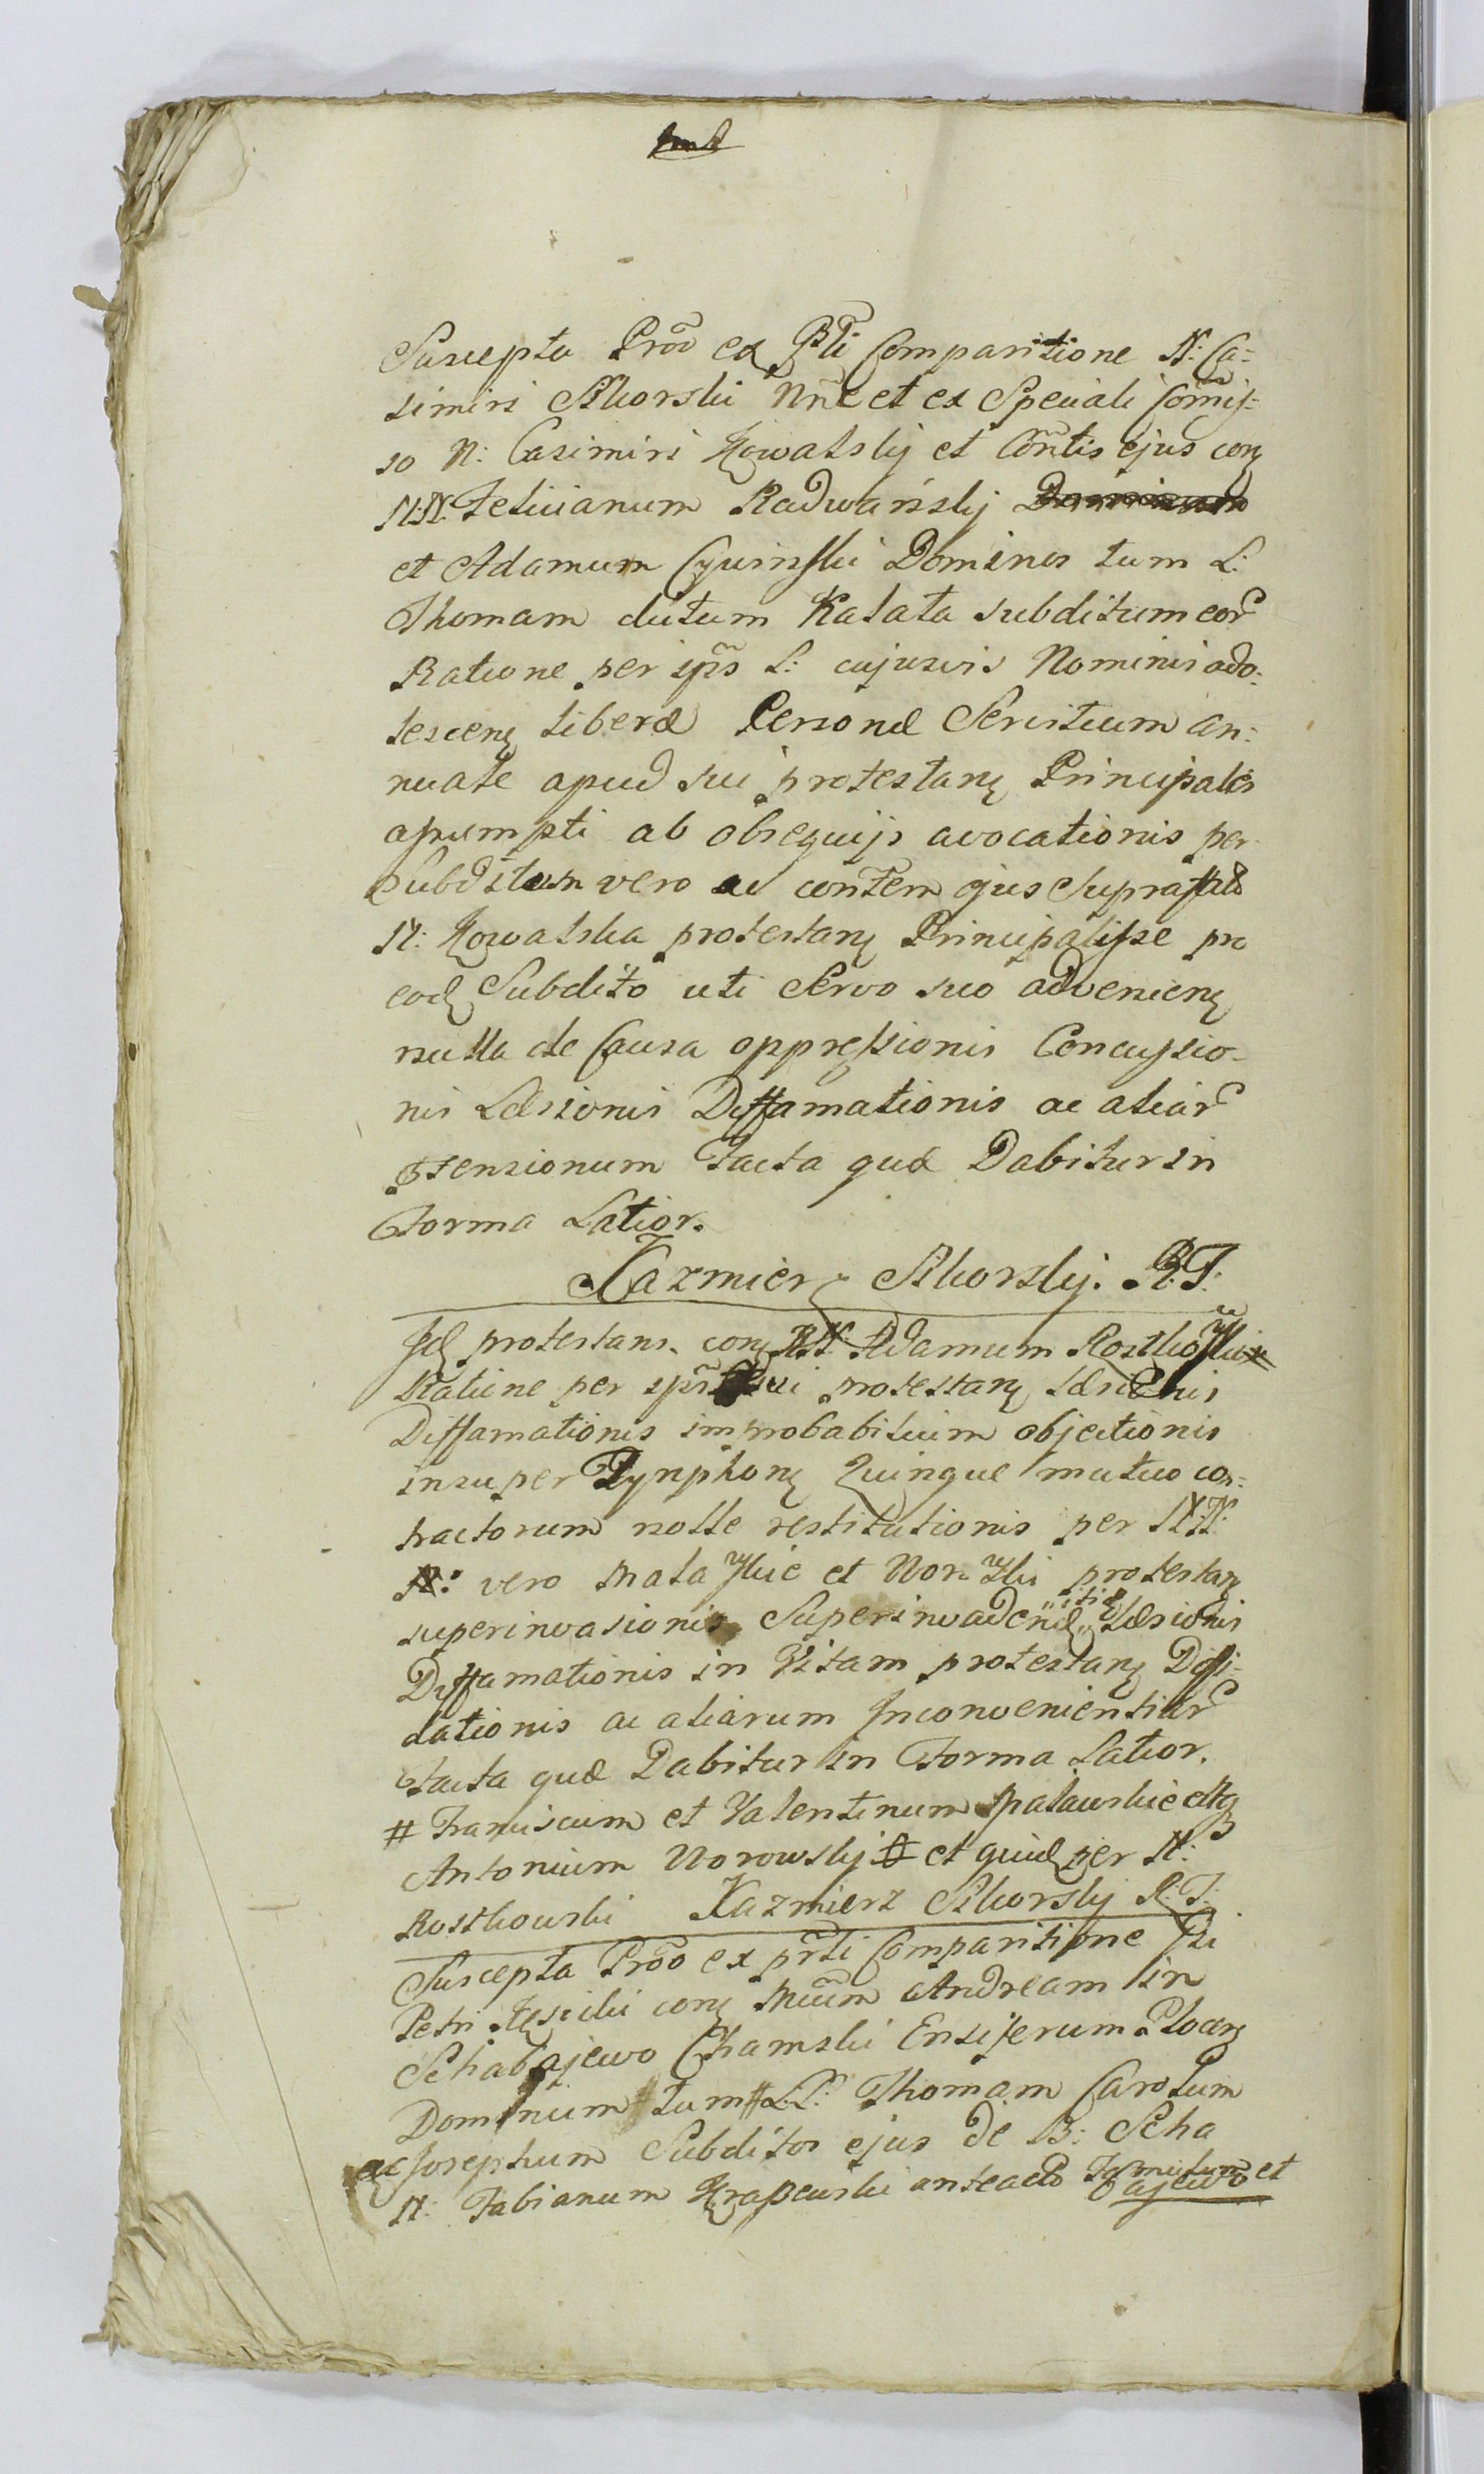 Suscepta Prõ ex Prti Comparitione N: Ca=
simiri Sikorski Nñe et ex Speciali Com̃is=
so N: Casimiri Kowalskij et Cõntis ejus con
N:N: Felicianum Radwańskij
et Adamum Cywinski Dominos tum L:
Thomam dictum Kałata subditum eor
Ratione per ip̃s L: cujusvis Nominis ado=
lescen liberæ Personæ Servitium an=
nuale apud sui protestan Principales
assumpti ab obsequijs avocationis per
Subditum vero ac contem ejus Suprafato
N: Kowalska protestan Principalisse pro
eod Subdito uti Servo suo advenien
nulla de Causa oppressionis Concussio=
nis Læsionis Diffamationis ac aliar
tensionum Facta quæ Dabitur in
Forma Latior.
Kazmierz Sikorskij. R:T:
Id protestans. con NN: Adamum Rostko
Ratione per ip̃s sui protestan læsionis
Diffamationis improbabilium objectionis
insuper Tynphon Quinque mutuo con=
tractorum nolle restitutionis per N:N:
N: vero Mala et Nor protestan
superinvasionis Superinvadendæ Læsionis
Diffamationis in Vitam protestan Diffi=
dationis ac aliarum Inconvenientiar
Facta quæ Dabitur in Forma Latior.
# Franciscum et Valentinum Malawskie
Antonium Norowskij # et quid per N:
Rostkowski Kazmierz Sikorskij R:T:
Suscepta Prõo ex prti Comparitione
Petri con Andream in
Schabajewo Chamski Ensiferum Plocen
Dominum tum # L:L: Thomam Carolum
ac Josephum Subditos ejus de B: Scha
bajewo et
N: Fabianum anteacto Famulum